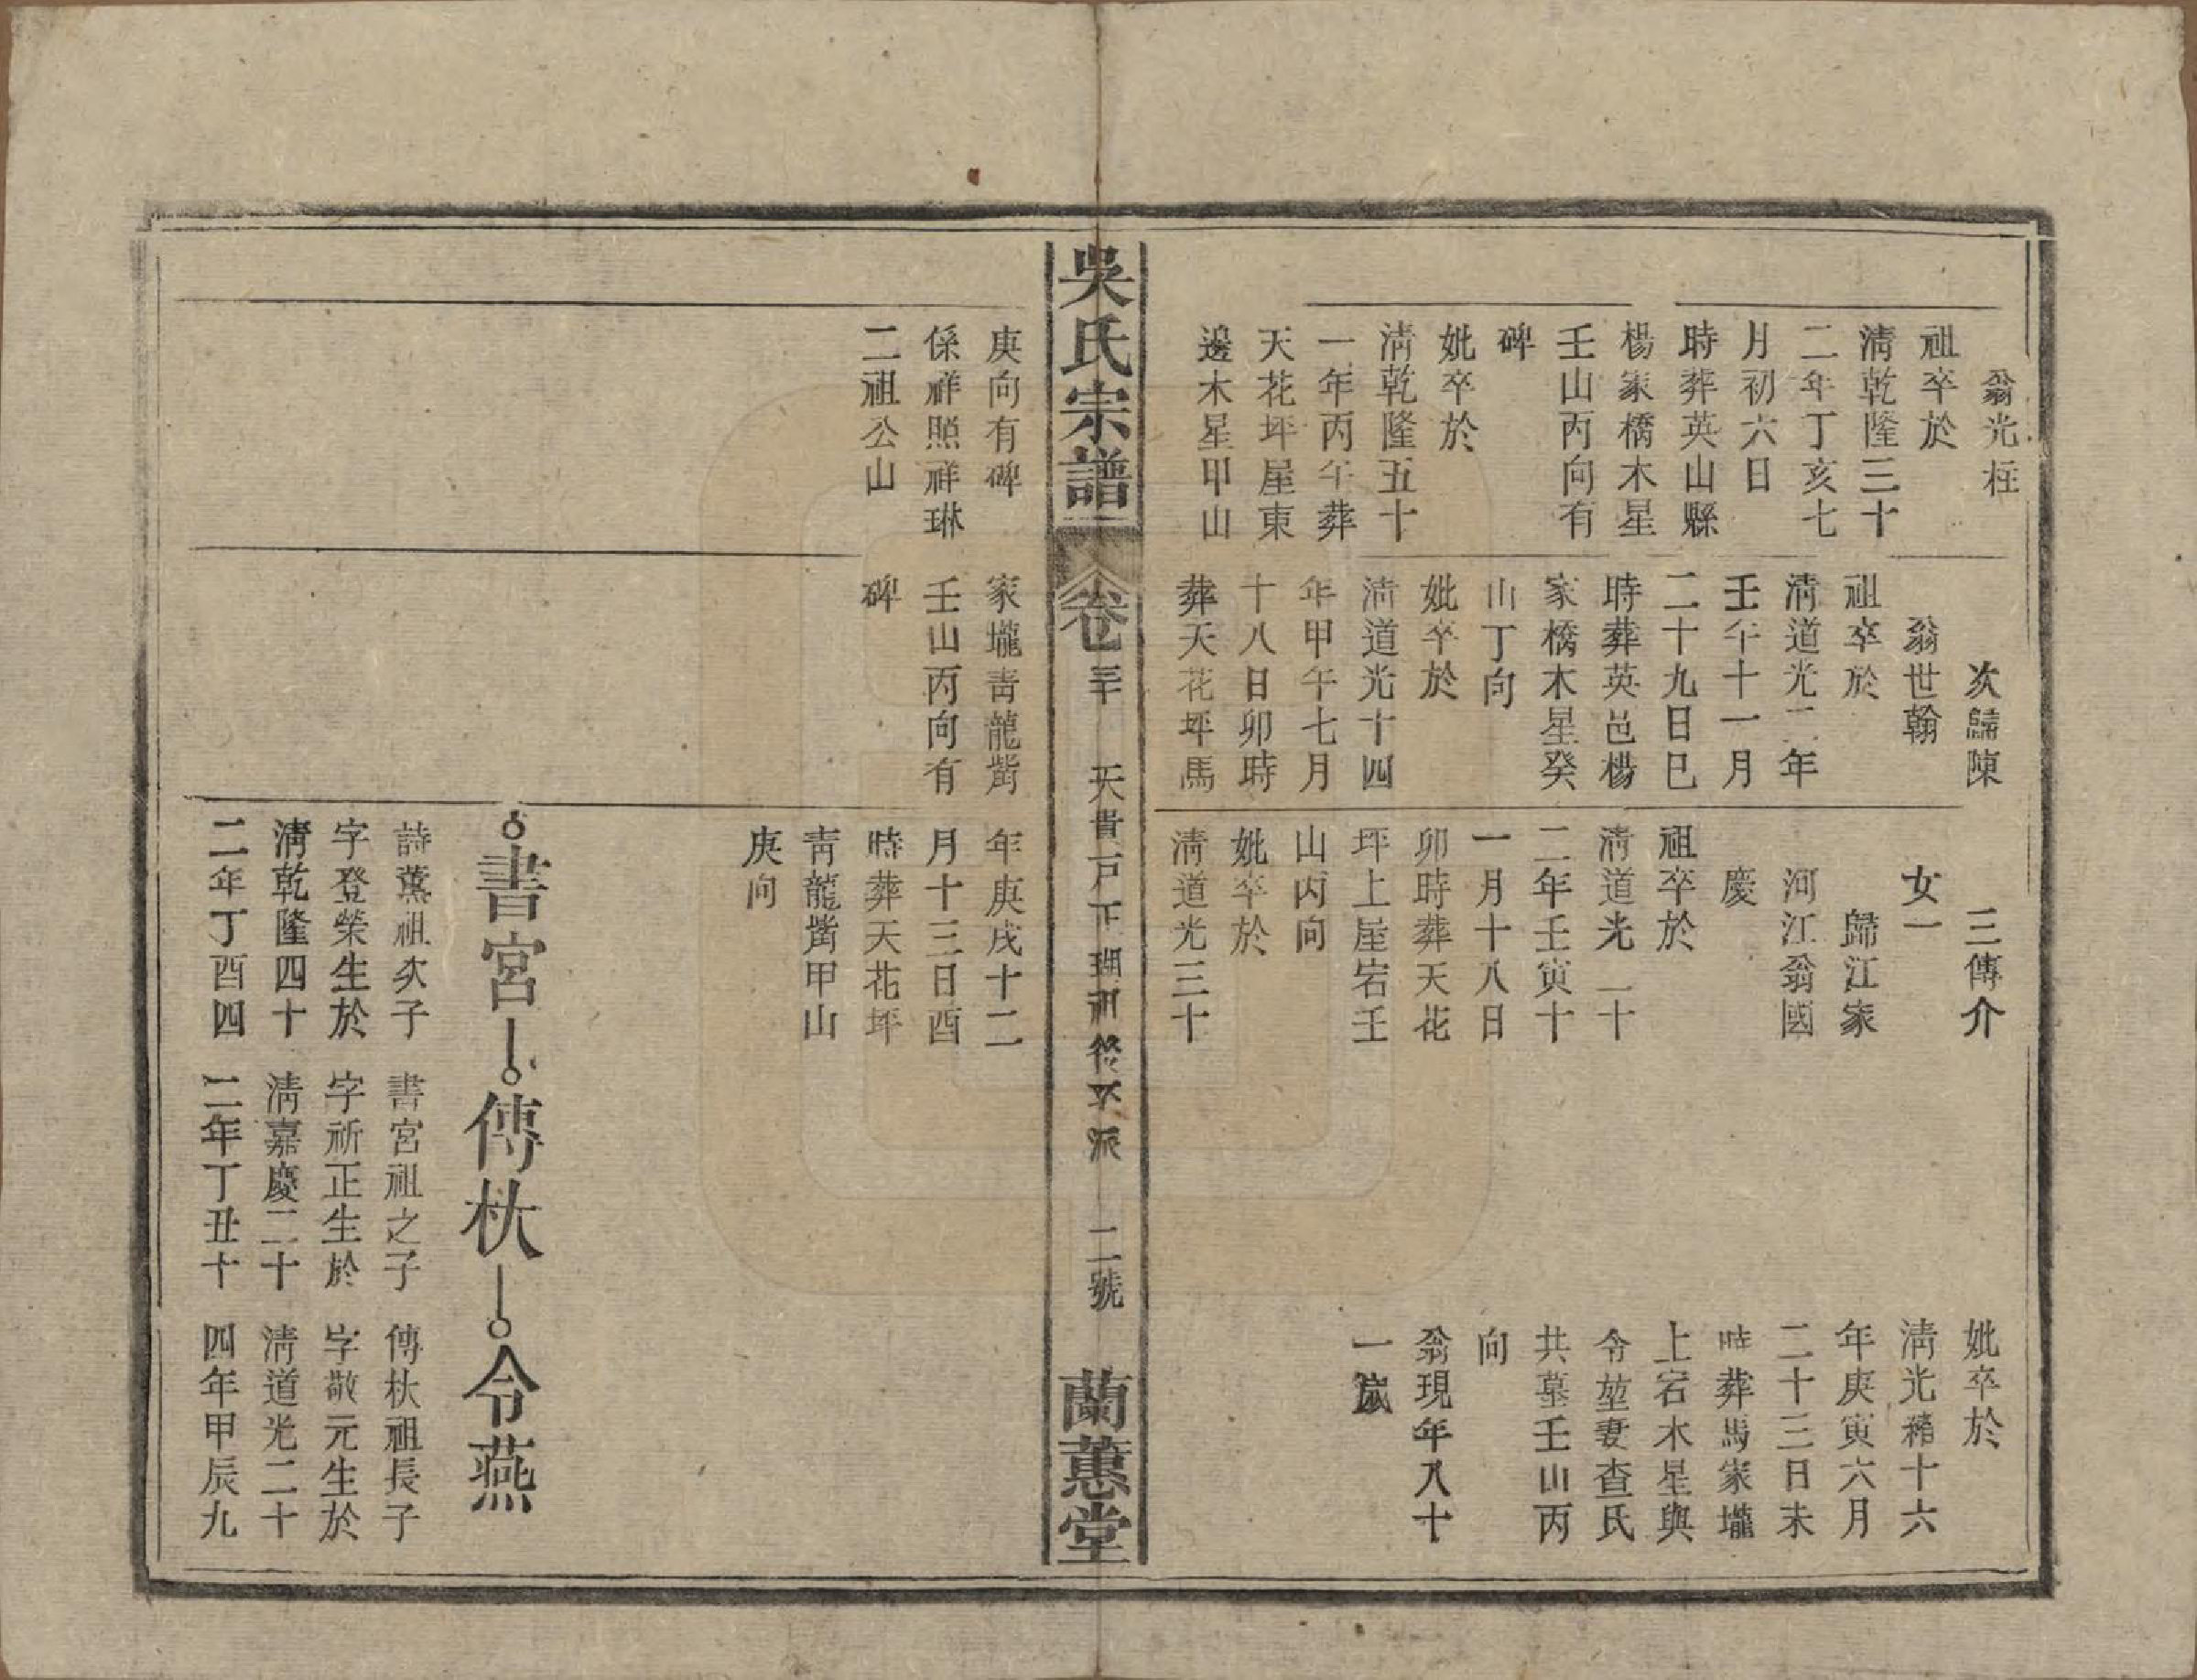 翁光柱
祖卒於
淸乾隆三十
二年丁亥七
月初六日
時葬英山縣
楊家橋木星
壬山丙向有
碑
妣卒於
淸乾隆五十
一年丙午葬
天花坪屋東
邊木星甲山
次歸陳
翁世翰
祖卒於
淸道光二年
壬午十一月
二十九日巳
時葬英邑楊
家橋木星癸
山丁向
妣卒於
淸道光十四
年甲午七月
十八日卯時
葬天花坪馬
三傳介
女一
歸江家
河江翁國
慶
祖卒於
淸道光二十
二年壬寅十
一月十八日
卯時葬天花
坪上屋宕壬
山丙向
妣卒於
淸道光三十
妣卒於
淸光緒十六
年庚寅六月
二十三日未
時葬馬家壠
上宕木星與
令堃妻查氏
共墓壬山丙
向
翁現年八十
一歲
吳氏宗譜
卷三十
天貴戸正瑚祖從文派
二號
蘭蕙堂
庚向有碑
係祥熙祥琳
二祖公山
家壠青龍嘴
壬山丙向有
碑
年庚戌十二
月十三日酉
時葬天花坪
靑龍嘴甲山
庚向
書宮
傳杕
令燕
詩薰祖次子
字登榮生於
淸乾隆四十
二年丁酉四
書宮祖之子
字祈正生於
淸嘉慶二十
二年丁丑十
傳杕祖長子
字敬元生於
淸道光二十
四年甲辰九